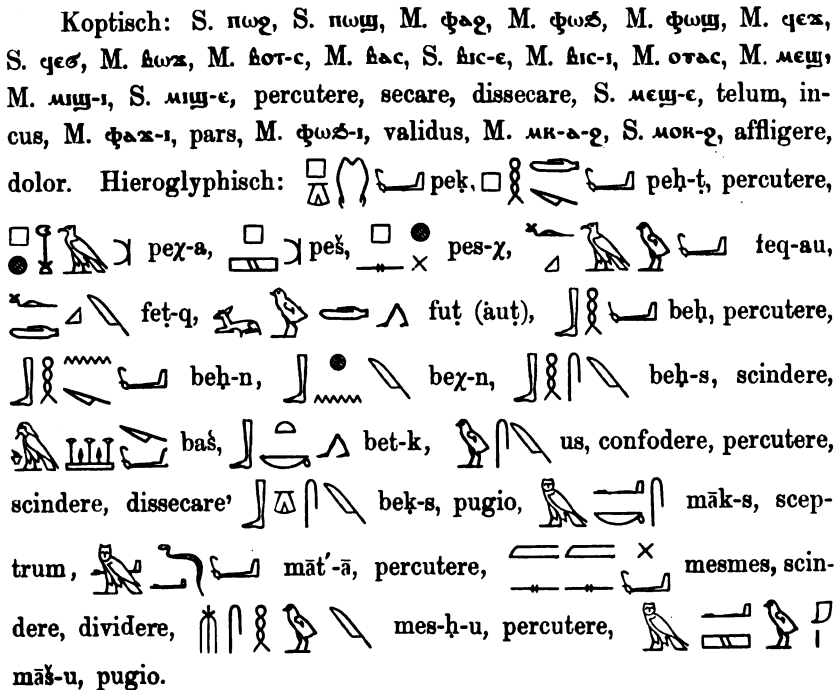 Koptisch: S. ⲡⲱϩ, S. ⲡⲱϣ, M. ⲫⲁϩ, M. ⲫⲱϧ, M. ⲫⲱϣ, M. ϥⲉϫ,
S. ϥⲉϭ, M. ⲃⲱϫ, M. ⲃⲟⲧ-ⲥ, M. ⲃⲁⲥ, S. ⲃⲓⲥ-ⲉ, M. ⲃⲓⲥ-ⲓ, M. ⲟⲩⲁⲥ, M. ⲙⲉϣ,
M. ⲙⲓϣ-ⲓ, S. ⲙⲓϣ-ⲉ, percutere, secare, dissecare, S. ⲙⲉϣ-ⲉ, telum, in-
cus, M. ⲫⲁϫ-ⲓ, pars, M. ⲫⲱϧ-ⲓ, validus, M. ⲙⲕ-ⲁ-ϩ, S. ⲙⲟⲕ-ϩ, affligere,
dolor. Hieroglyphisch: peḳ, peḥ-ṭ, percutere,
peχ-a, peš, pes-χ, feq-au,
feṭ-q, fuṭ (áuṭ), beḥ, percutere,
beḥ-n, beχ-n, beḥ-s, scindere,
baś, bet-k, us, confodere, percutere,
scindere, dissecare’ beḳ-s, pugio, māk-s, scep-
trum, māt′-ā, percutere, mesmes, scin-
dere, dividere, mes-ḥ-u, percutere,
māš-u, pugio.